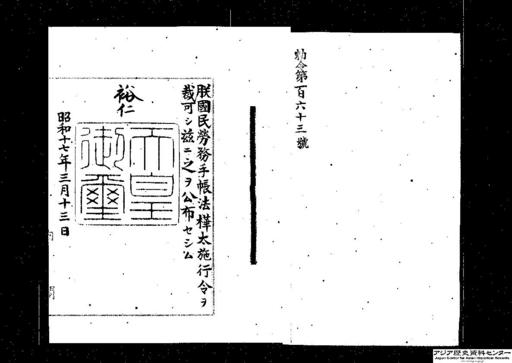 勅令第百六十三號
朕國民勞務手帳法樺太施行令ヲ
裁可シ茲ニ之ヲ公布セシム
裕仁
天皇
御璽
昭和十七年三月十三日
アジア歴史資料センター
Japan Center for Asian Historical Records